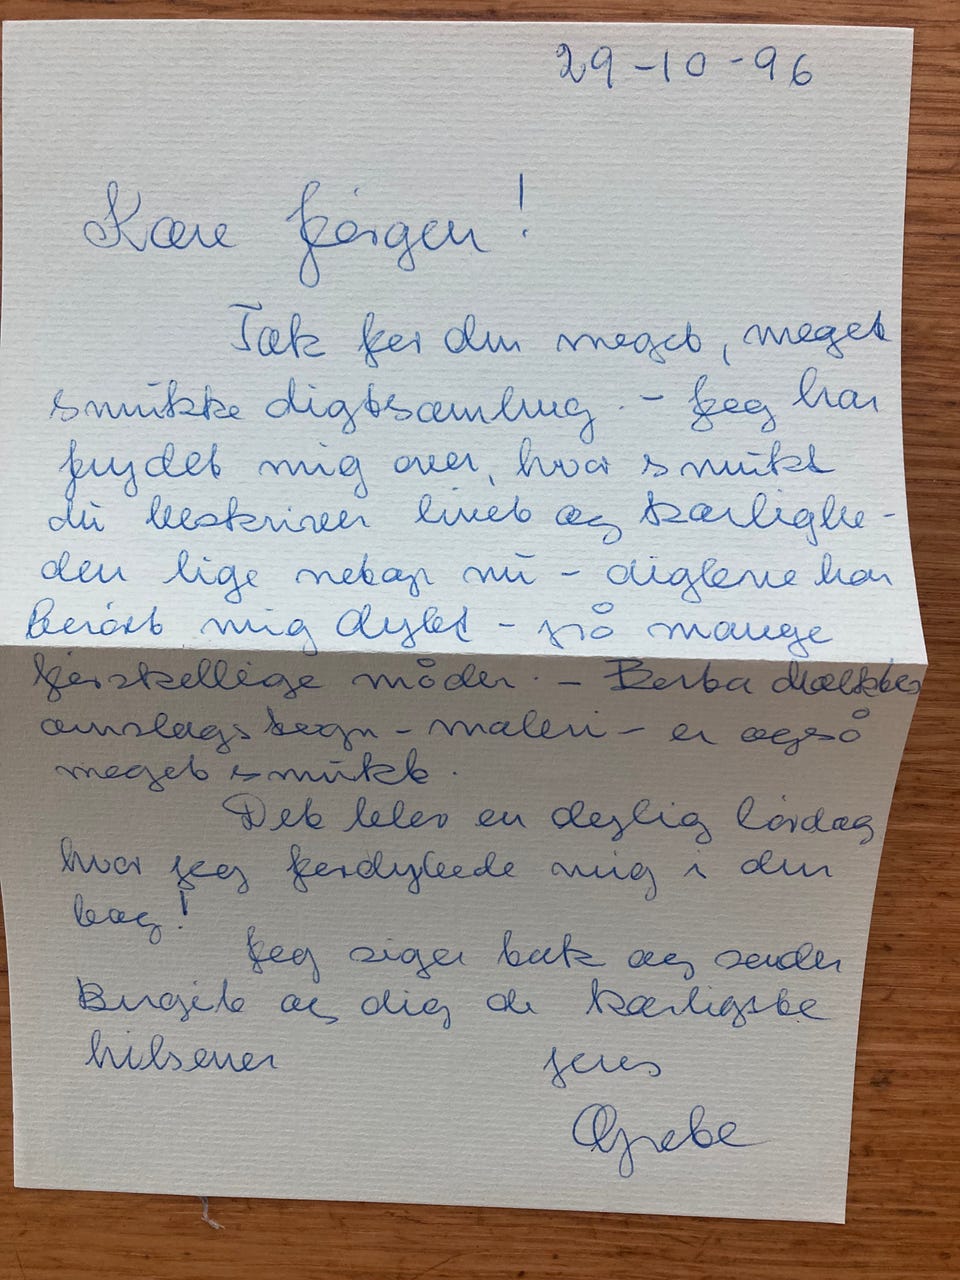 29-10-96
Kære Jørgen!
Tak for din meget, meget
smukke digtsamling. - Jeg har
frydet mig over, hvor smukt
du beskriver livet og kærlighe-
den lige netop nu - digtene har
berørt mig dybt - på mange
forskellige måder. -
omslagstegn - maleri - er også
meget smukt.
Det blev en dejlig lørdag
hvor jeg fordybede mig i din
bog!
Jeg siger tak og sender
Birgit og dig de kærligste
hilsener jeres
Grebe